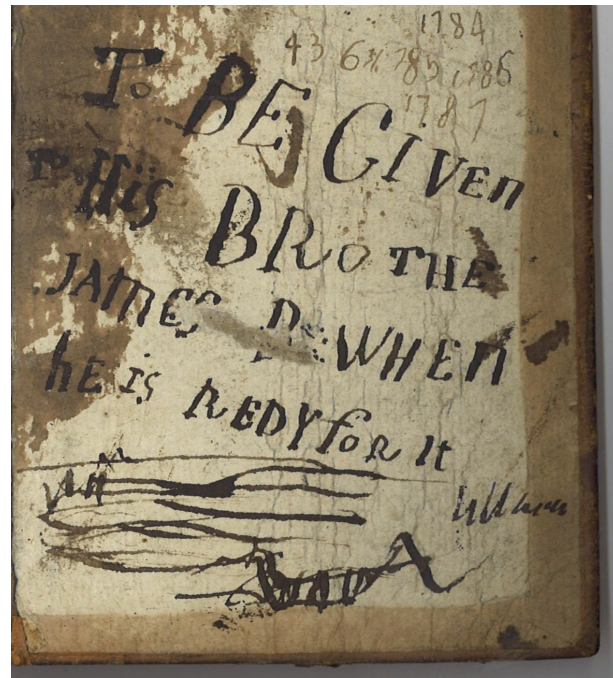 1784
43 6 1785 1786
1787
To BE GIVEn
To His
BROTHE
JAMES WHEN
hE is REDY for It